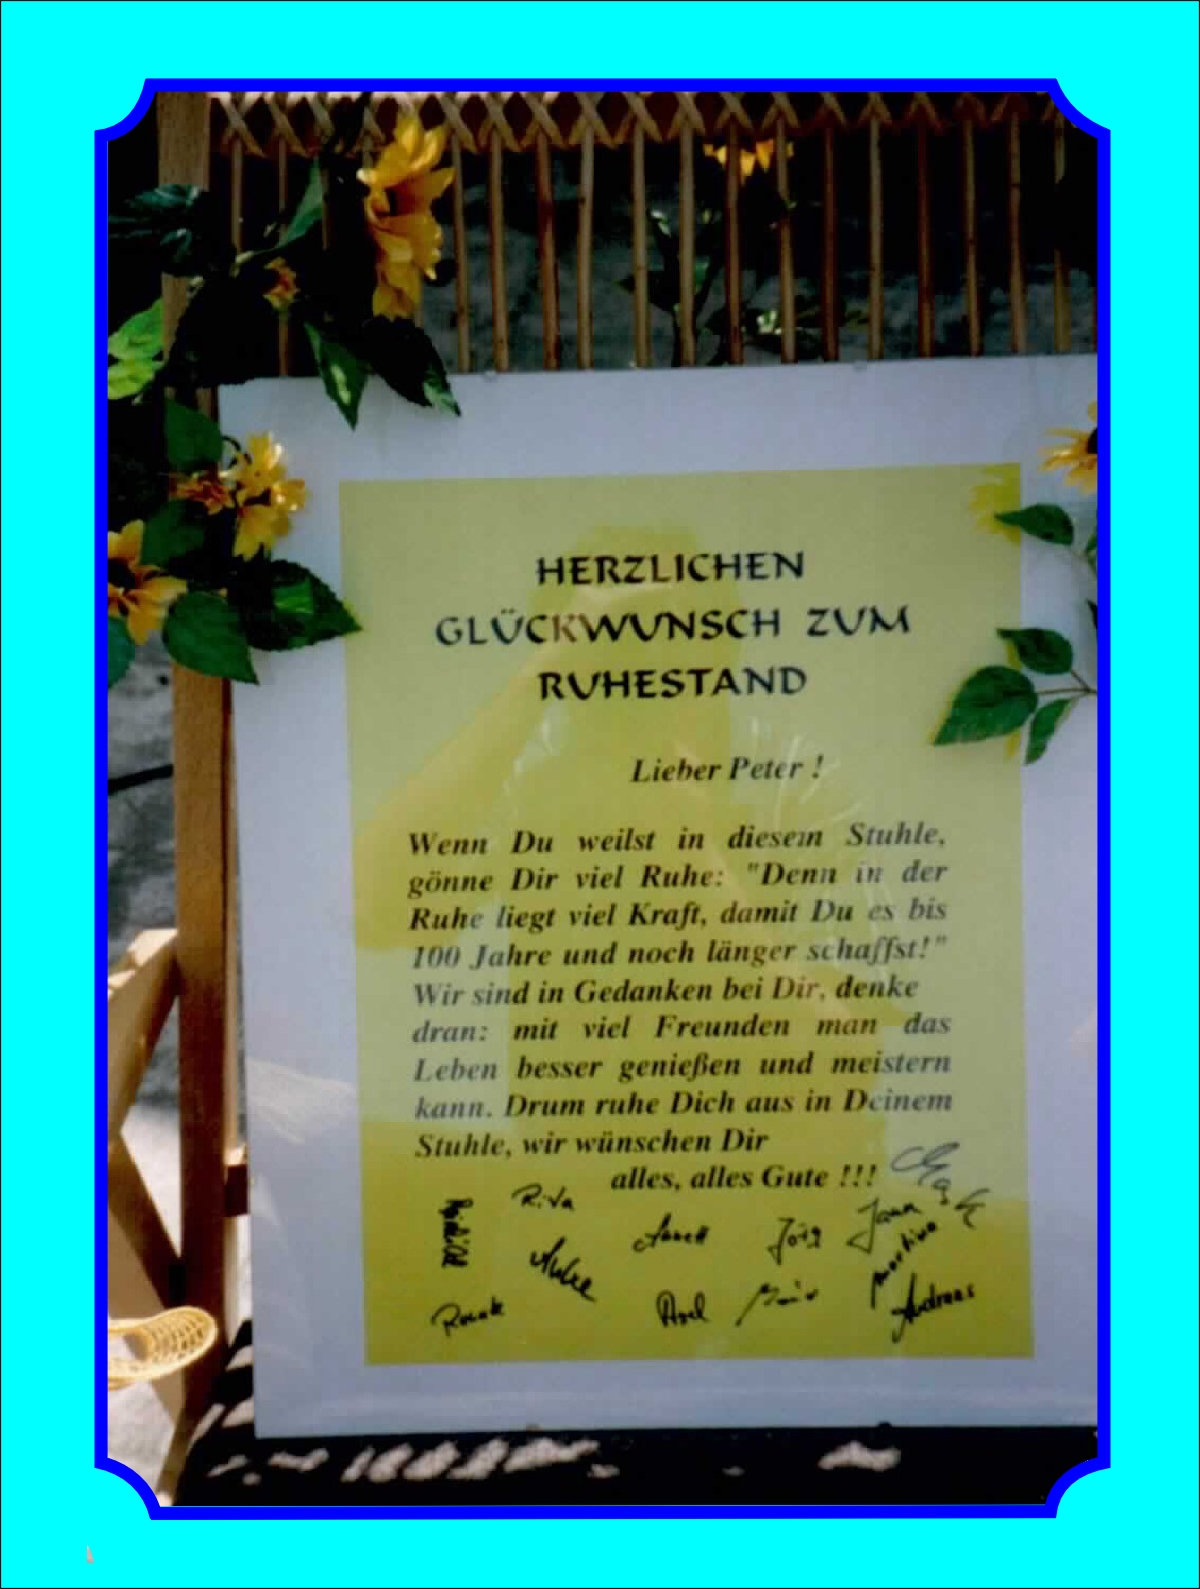 HERZLICHEN
GLÜCKWUNSCH ZUM
RUHESTAND
Lieber Peter !
Wenn Du weilst in diesem Stuhle,
gönne Dir viel Ruhe: "Denn in der
Ruhe liegt viel Kraft, damit Du es bis
100 Jahre und noch länger schaffst!"
Wir sind in Gedanken bei Dir, denke
dran: mit viel Freunden man das
Leben besser genießen und meistern
kann. Drum ruhe Dich aus in Deinem
Stuhle, wir wünschen Dir
alles, alles Gute !!!
Rita
Annett
Jörg
Jana
Martina
Anke
Axel
Andreas